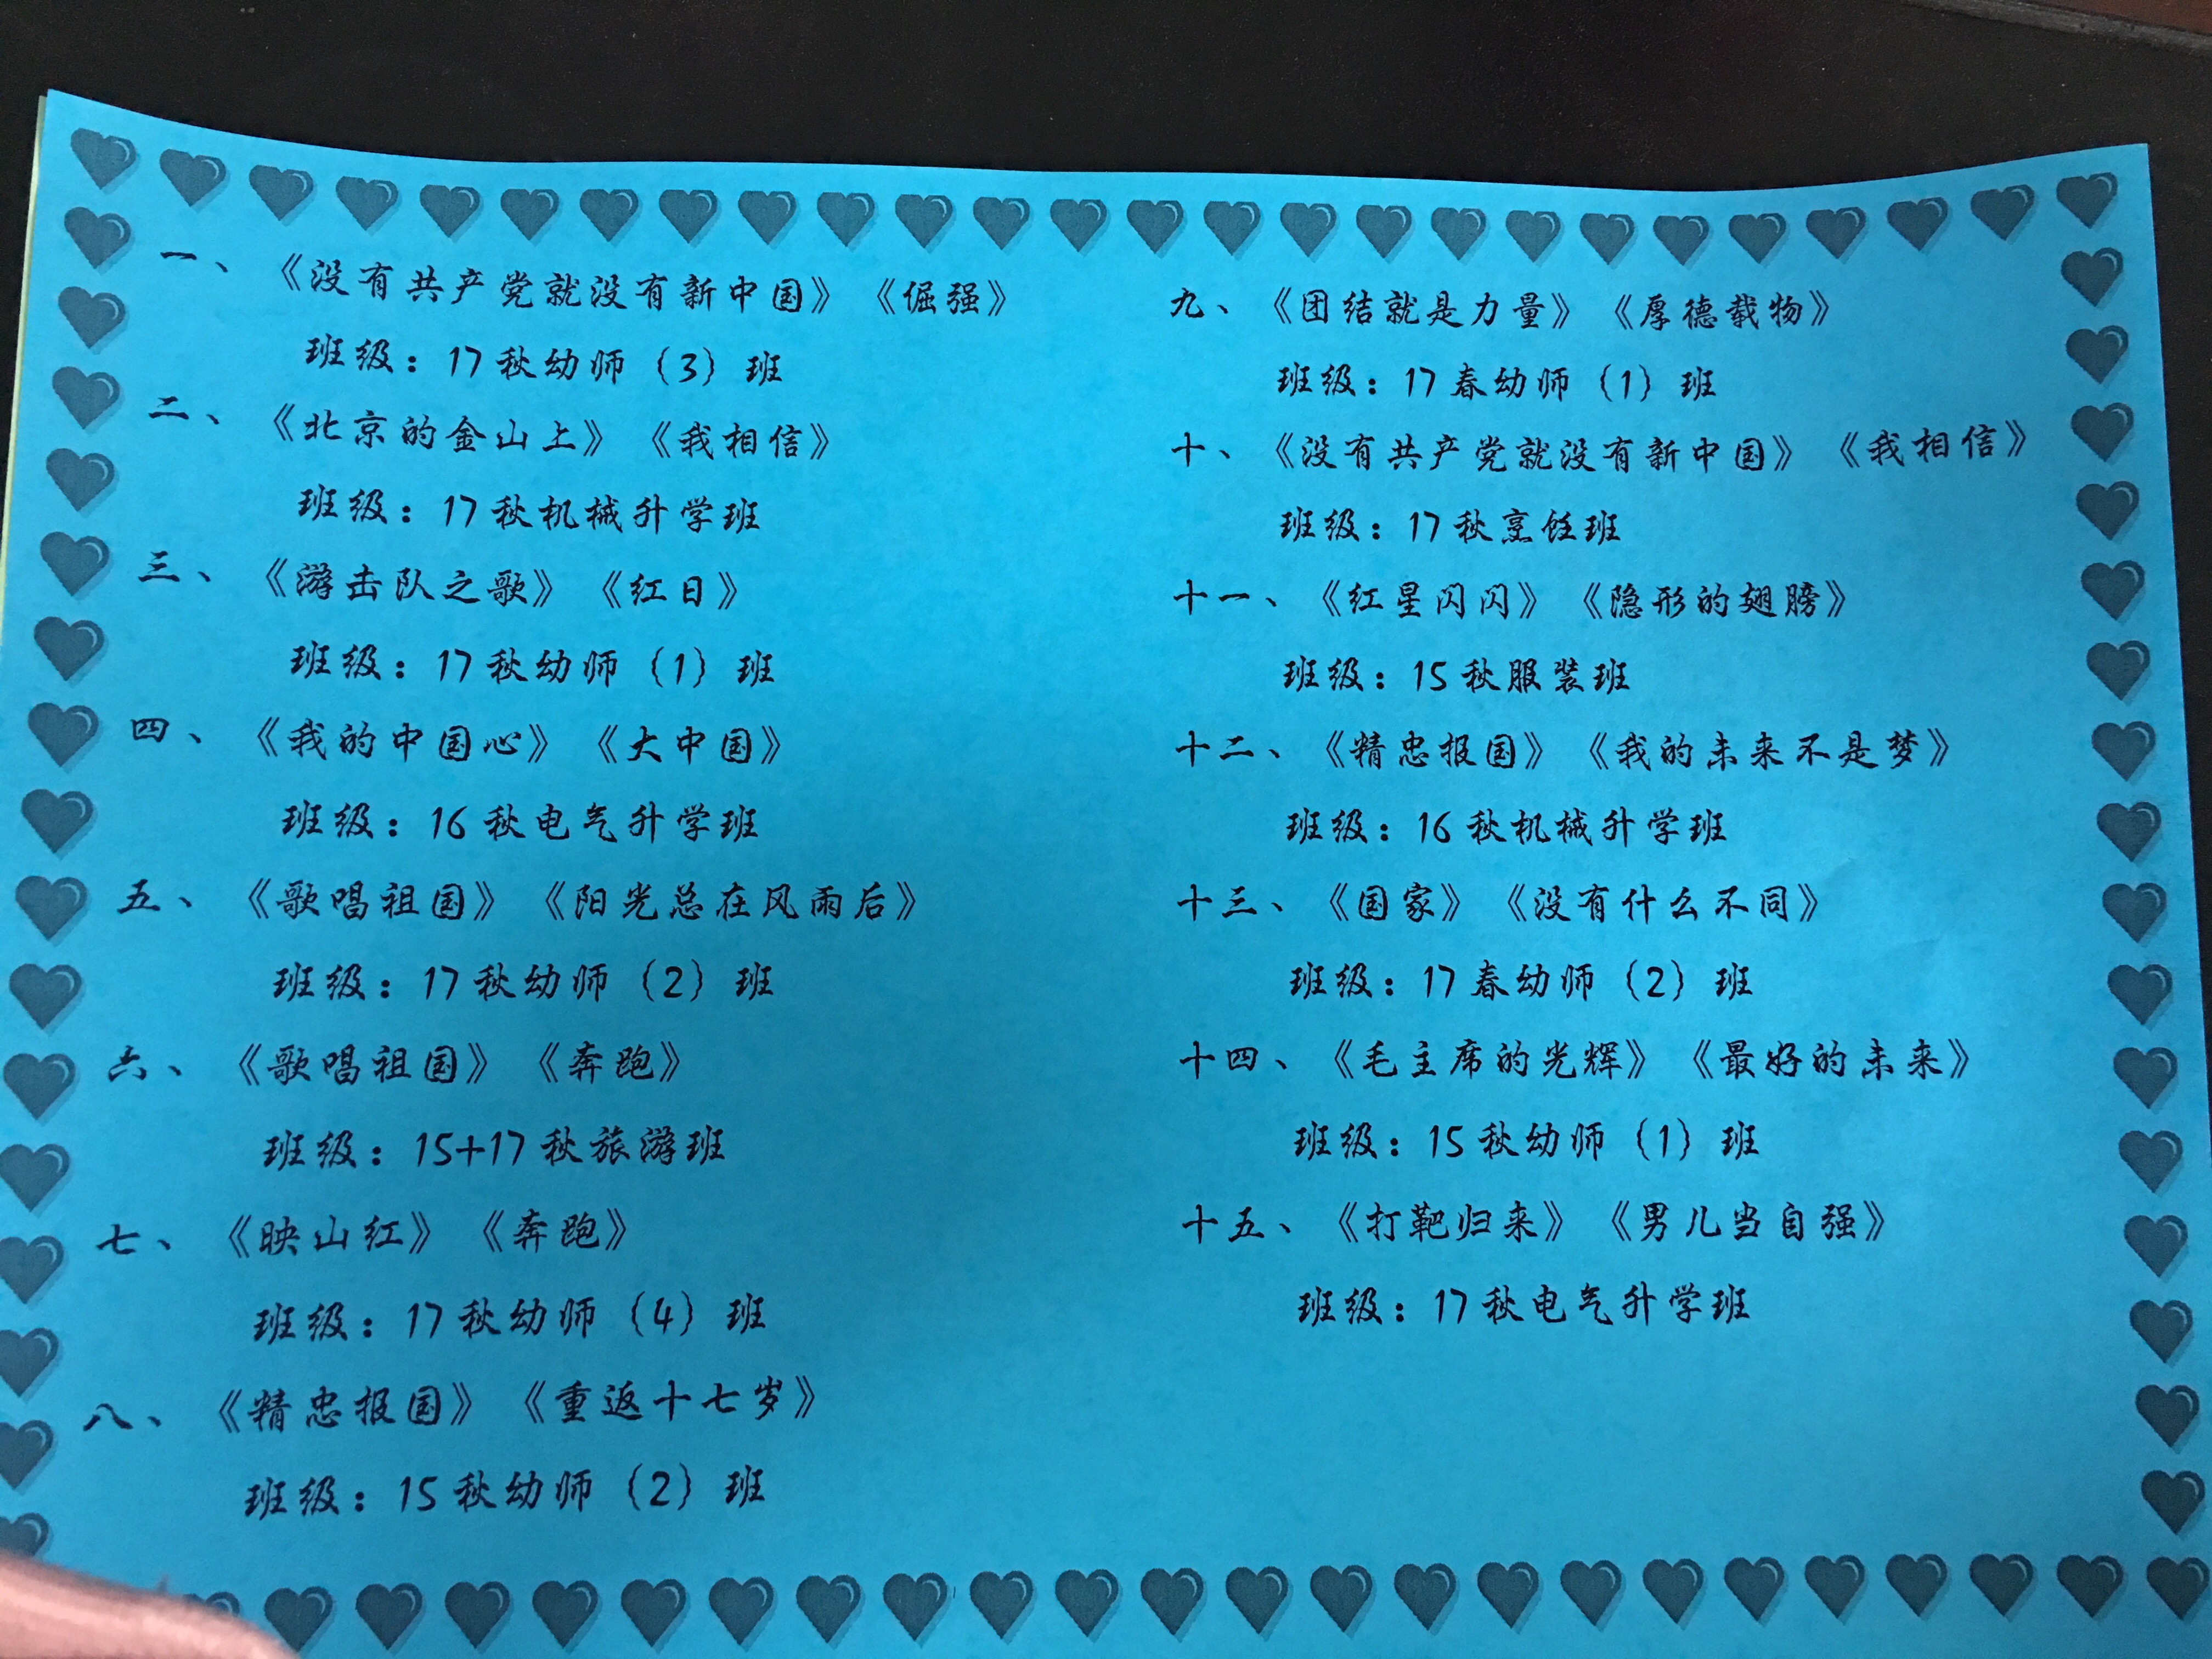 一、《没有共产党就没有新中国》《倔强》
班级：17秋幼师｛3｝班
二、《北京的金山上》《我相信》
班级：17秋机械升学班
三、《游击队之歌》《红日》
班级：17秋幼师｛1｝班
四、《我的中国心》《大中国》
班级：16秋电气升学班
五、《歌唱祖国》《阳光总在风雨后》
班级：17秋幼师｛2｝班
六、《歌唱祖国》《奔跑》
班级：15+17秋旅游班
七、《映山红》《奔跑》
班级：17秋幼师｛4｝班
八、《精忠报国》《重返十七岁》
班级：15秋幼师｛2｝班
九、《团结就是力量》《厚德载物》
班级：17春幼师｛1｝班
十、《没有共产党就没有新中国》《我相信》
班级：17秋烹饪班
十一、《红星闪闪》《隐形的翅膀》
班级：15秋服装班
十二、《精忠报国》《我的未来不是梦》
班级：16秋机械升学班
十三、《国家》《没有什么不同》
班级：17春幼师｛2｝班
十四、《毛主席的光辉》《最好的未来》
班级：15秋幼师｛1｝班
十五、《打靶归来》《男儿当自强》
班级：17秋电气升学班